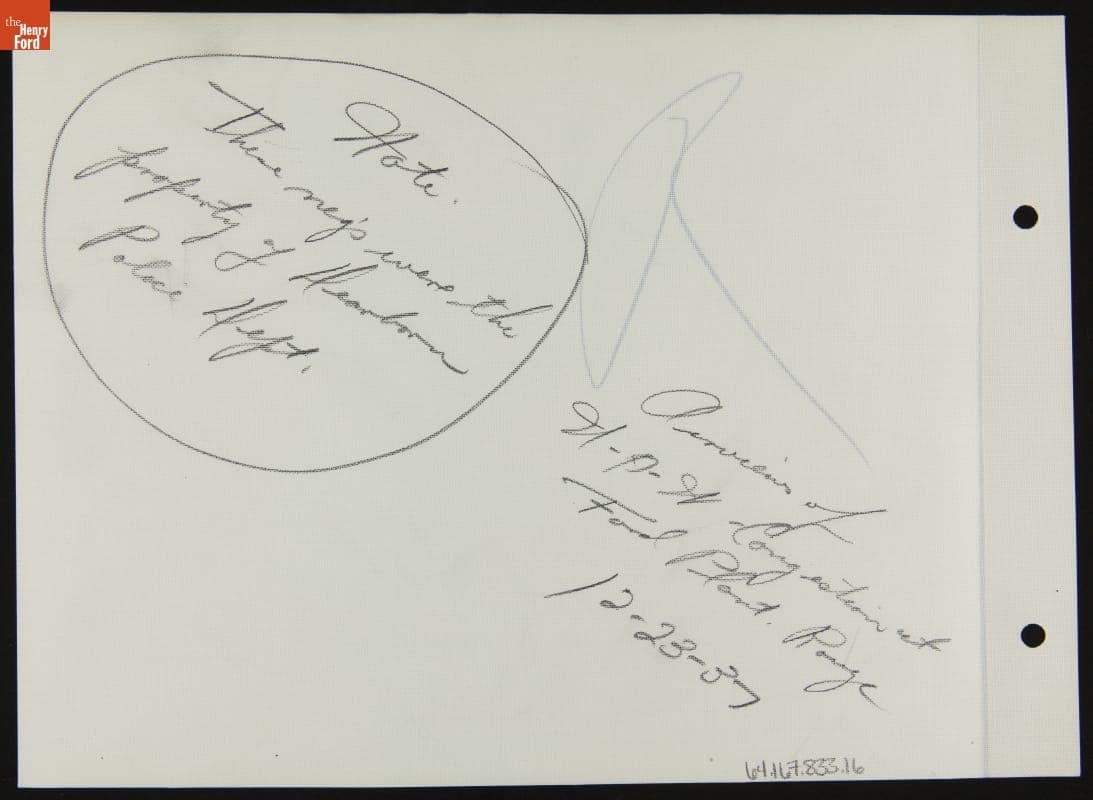 the
Henry
Ford
Note.
These neg's were the
property of Dearborn
Police Dept.
Airviews of
Congestion at
Ford Plant. Rouge
12-23-37
64.167.833.16